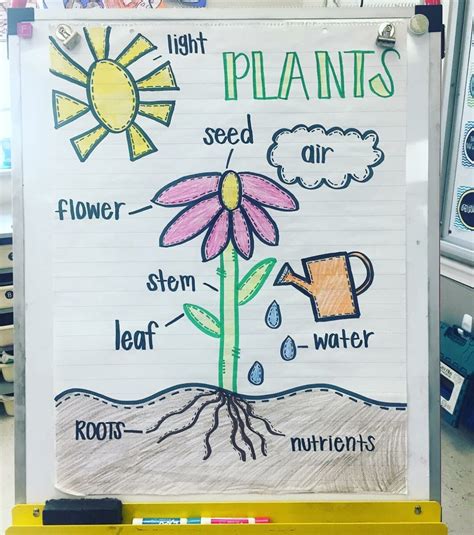 light
PLANTS
seed
air
flower
stem
leaf
water
ROOTS
nutrients